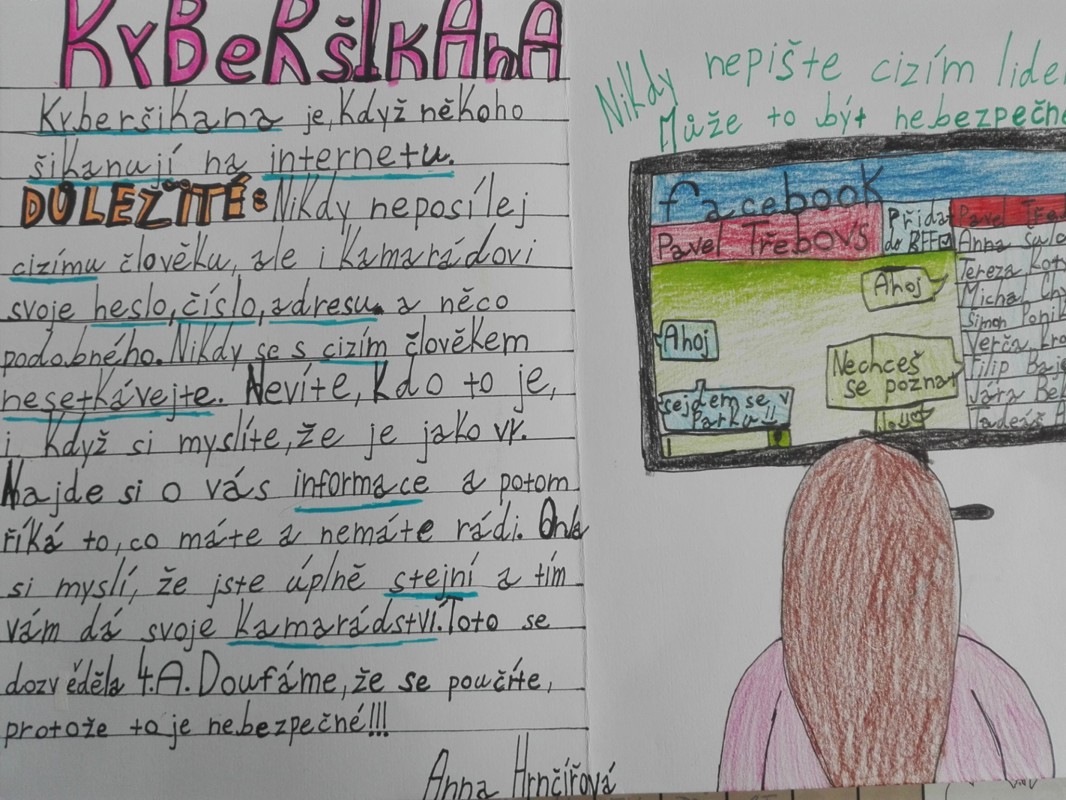 KYBERŠIKANA
Kyberšikana je, Když někoho
šikanují na internetu.
DŮLEŽITÉ: Nikdy neposílej
cizímu človéku, ale i Kamarádovi
svoje heslo, číslo, adresu. a něco
podobného. Nikdy se s cizím člověkem
nesetkávejte. Nevíte, kdo to je,
i když si myslíte, že je jako vy.
Najde si o vás informace a potom
říká to, co máte a nemáte rádi. Ona
si myslí, že jste úplně stejní a tím
vám dá svoje kamarádství. Toto se
dozvěděla 4.A. Doufáme, že se poučíte,
protože to je nebezpečné!!!
Anna Hrnčířová
Nikdy nepište cizím
Může to být nebezpečné
facebook
Pavel Třebovs
Přidat
do BFF
Pavel
Anna
Tereza
Michal
Šimon
Verča
Filip
Jára
Tadeáš
Ahoj
Ahoj
Nechceš
se poznat
sejdem se v
Parku!!